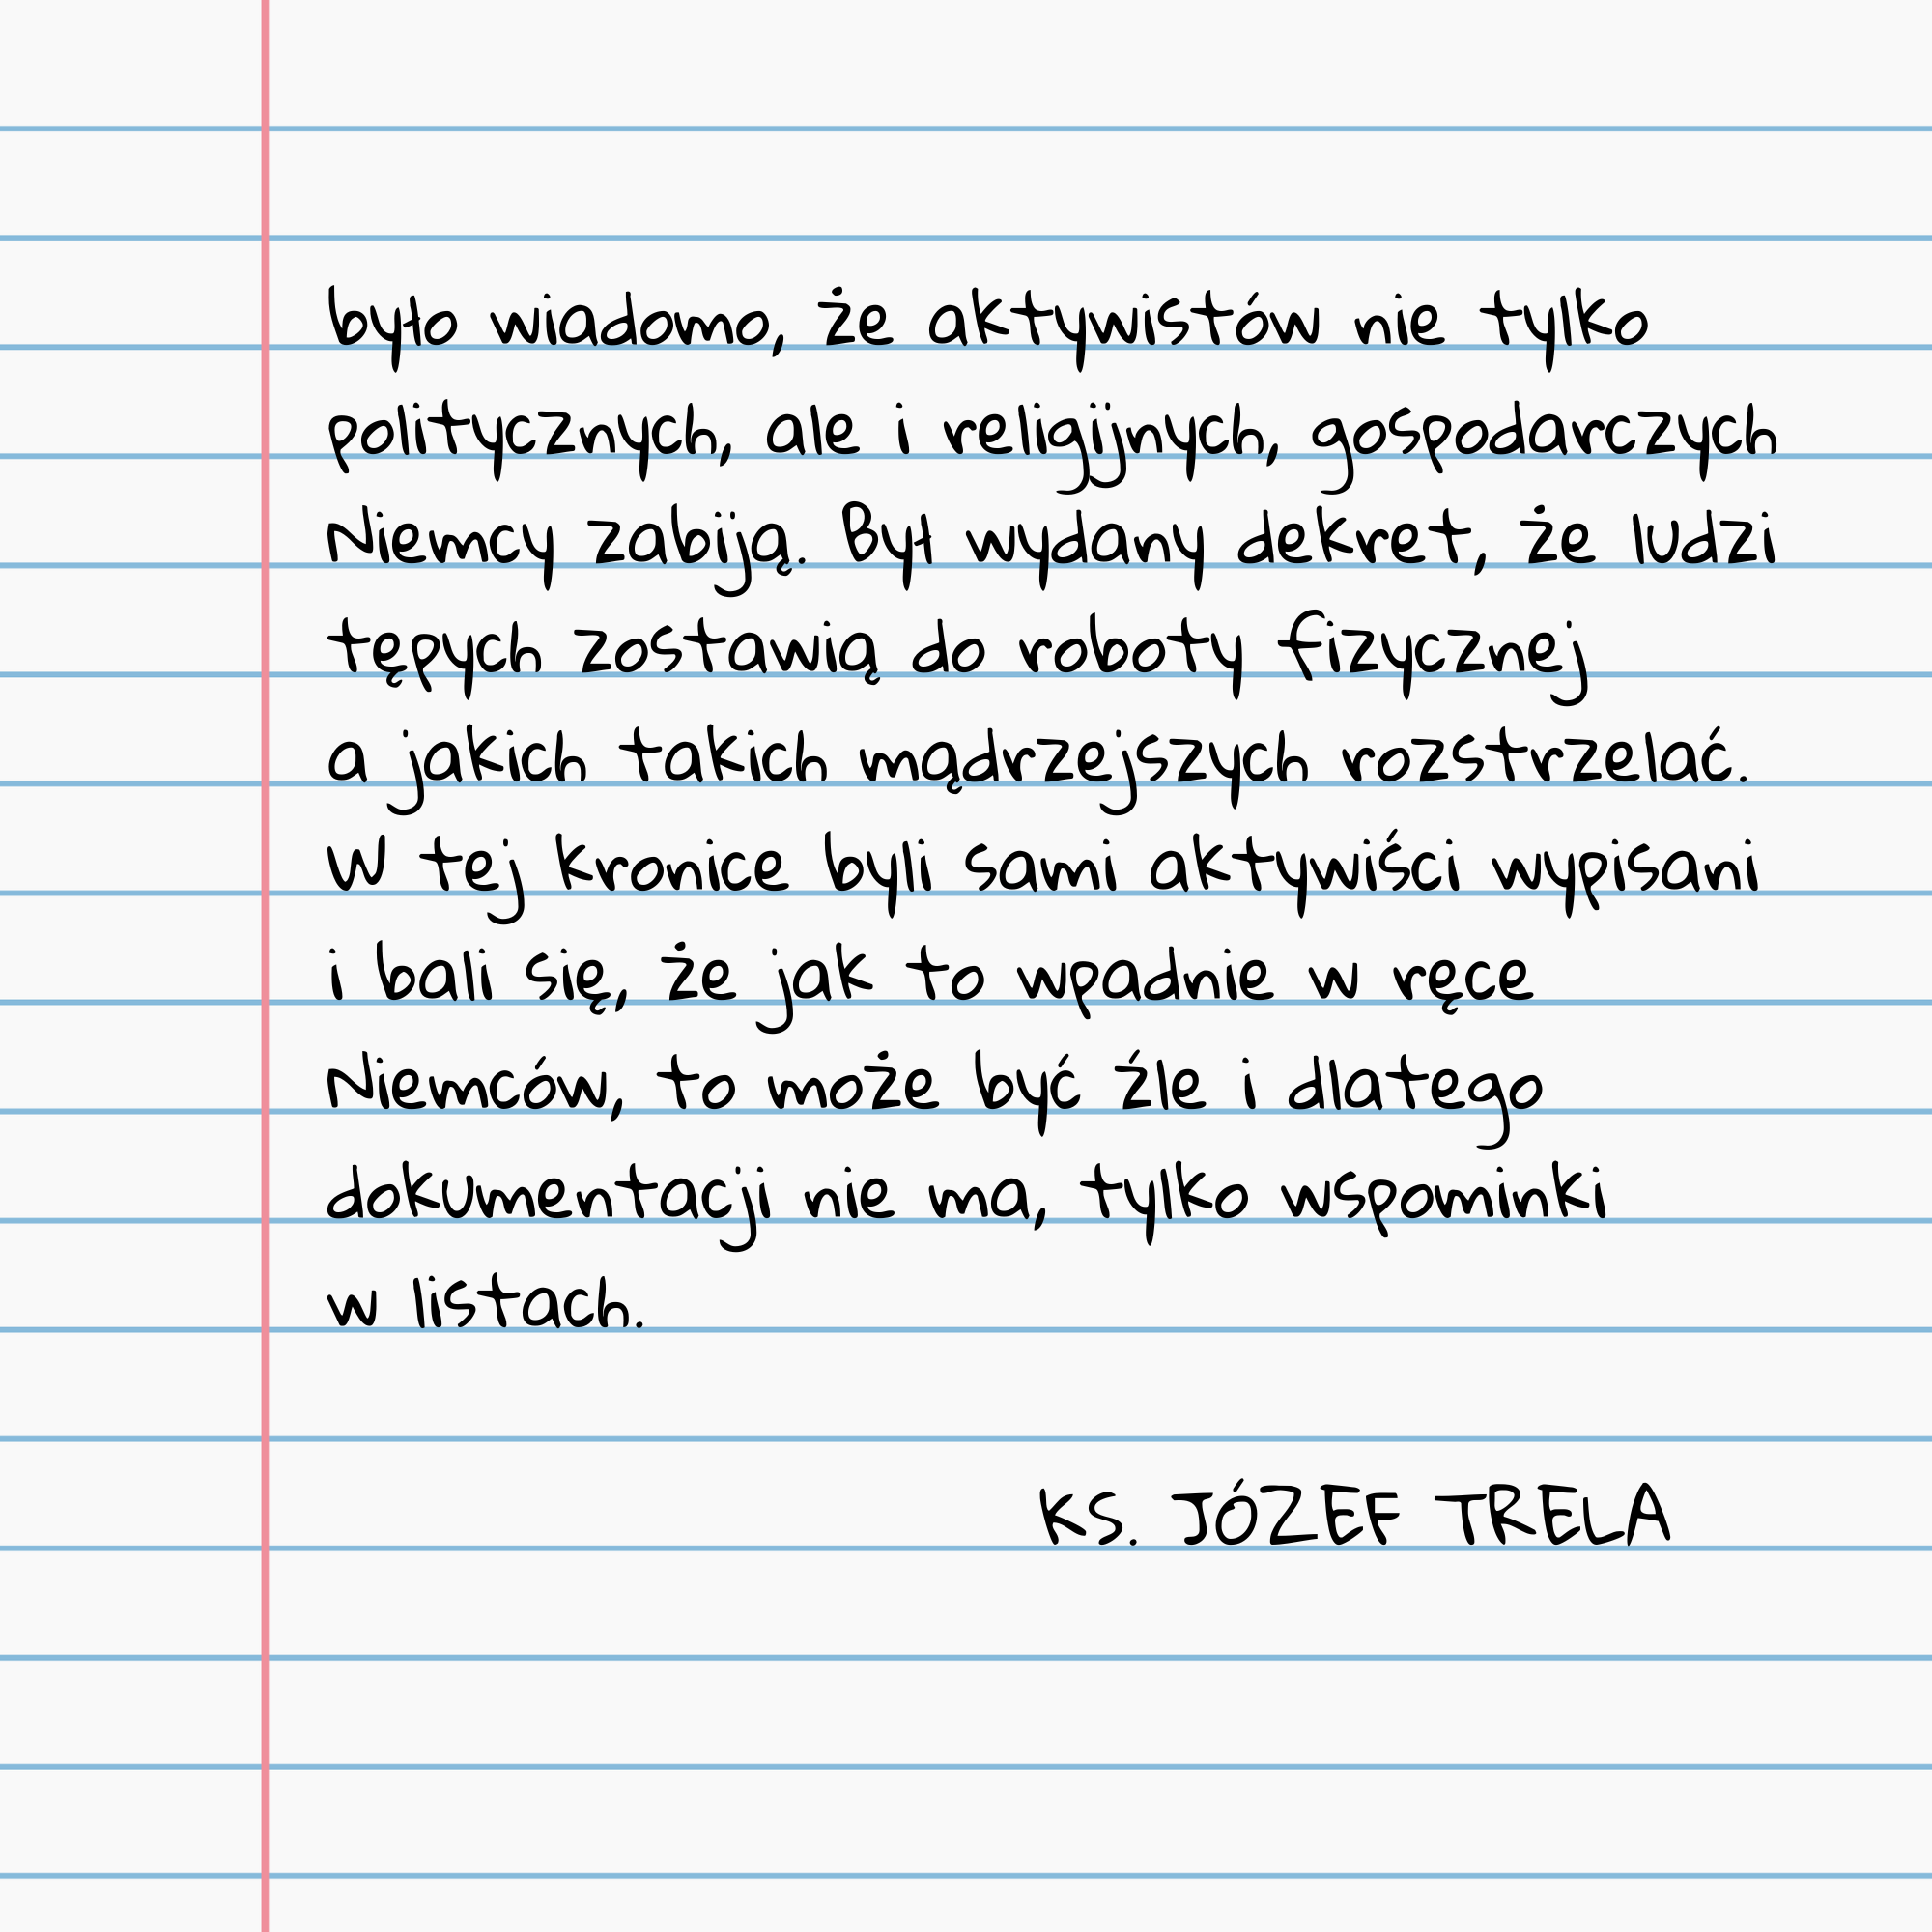 było wiadomo, że aktywistów nie tylko
politycznych, ale i religijnych, gospodarczych
Niemcy zabiją. Był wydany dekret, że ludzi
tępych zostawią do roboty fizycznej
a jakich takich mądrzejszych rozstrzelać.
W tej kronice byli sami aktywiści wypisani
i bali się, że jak to wpadnie w ręce
Niemców, to może być źle i dlatego
dokumentacji nie ma, tylko wspominki
w listach.
KS. JÓZEF TRELA